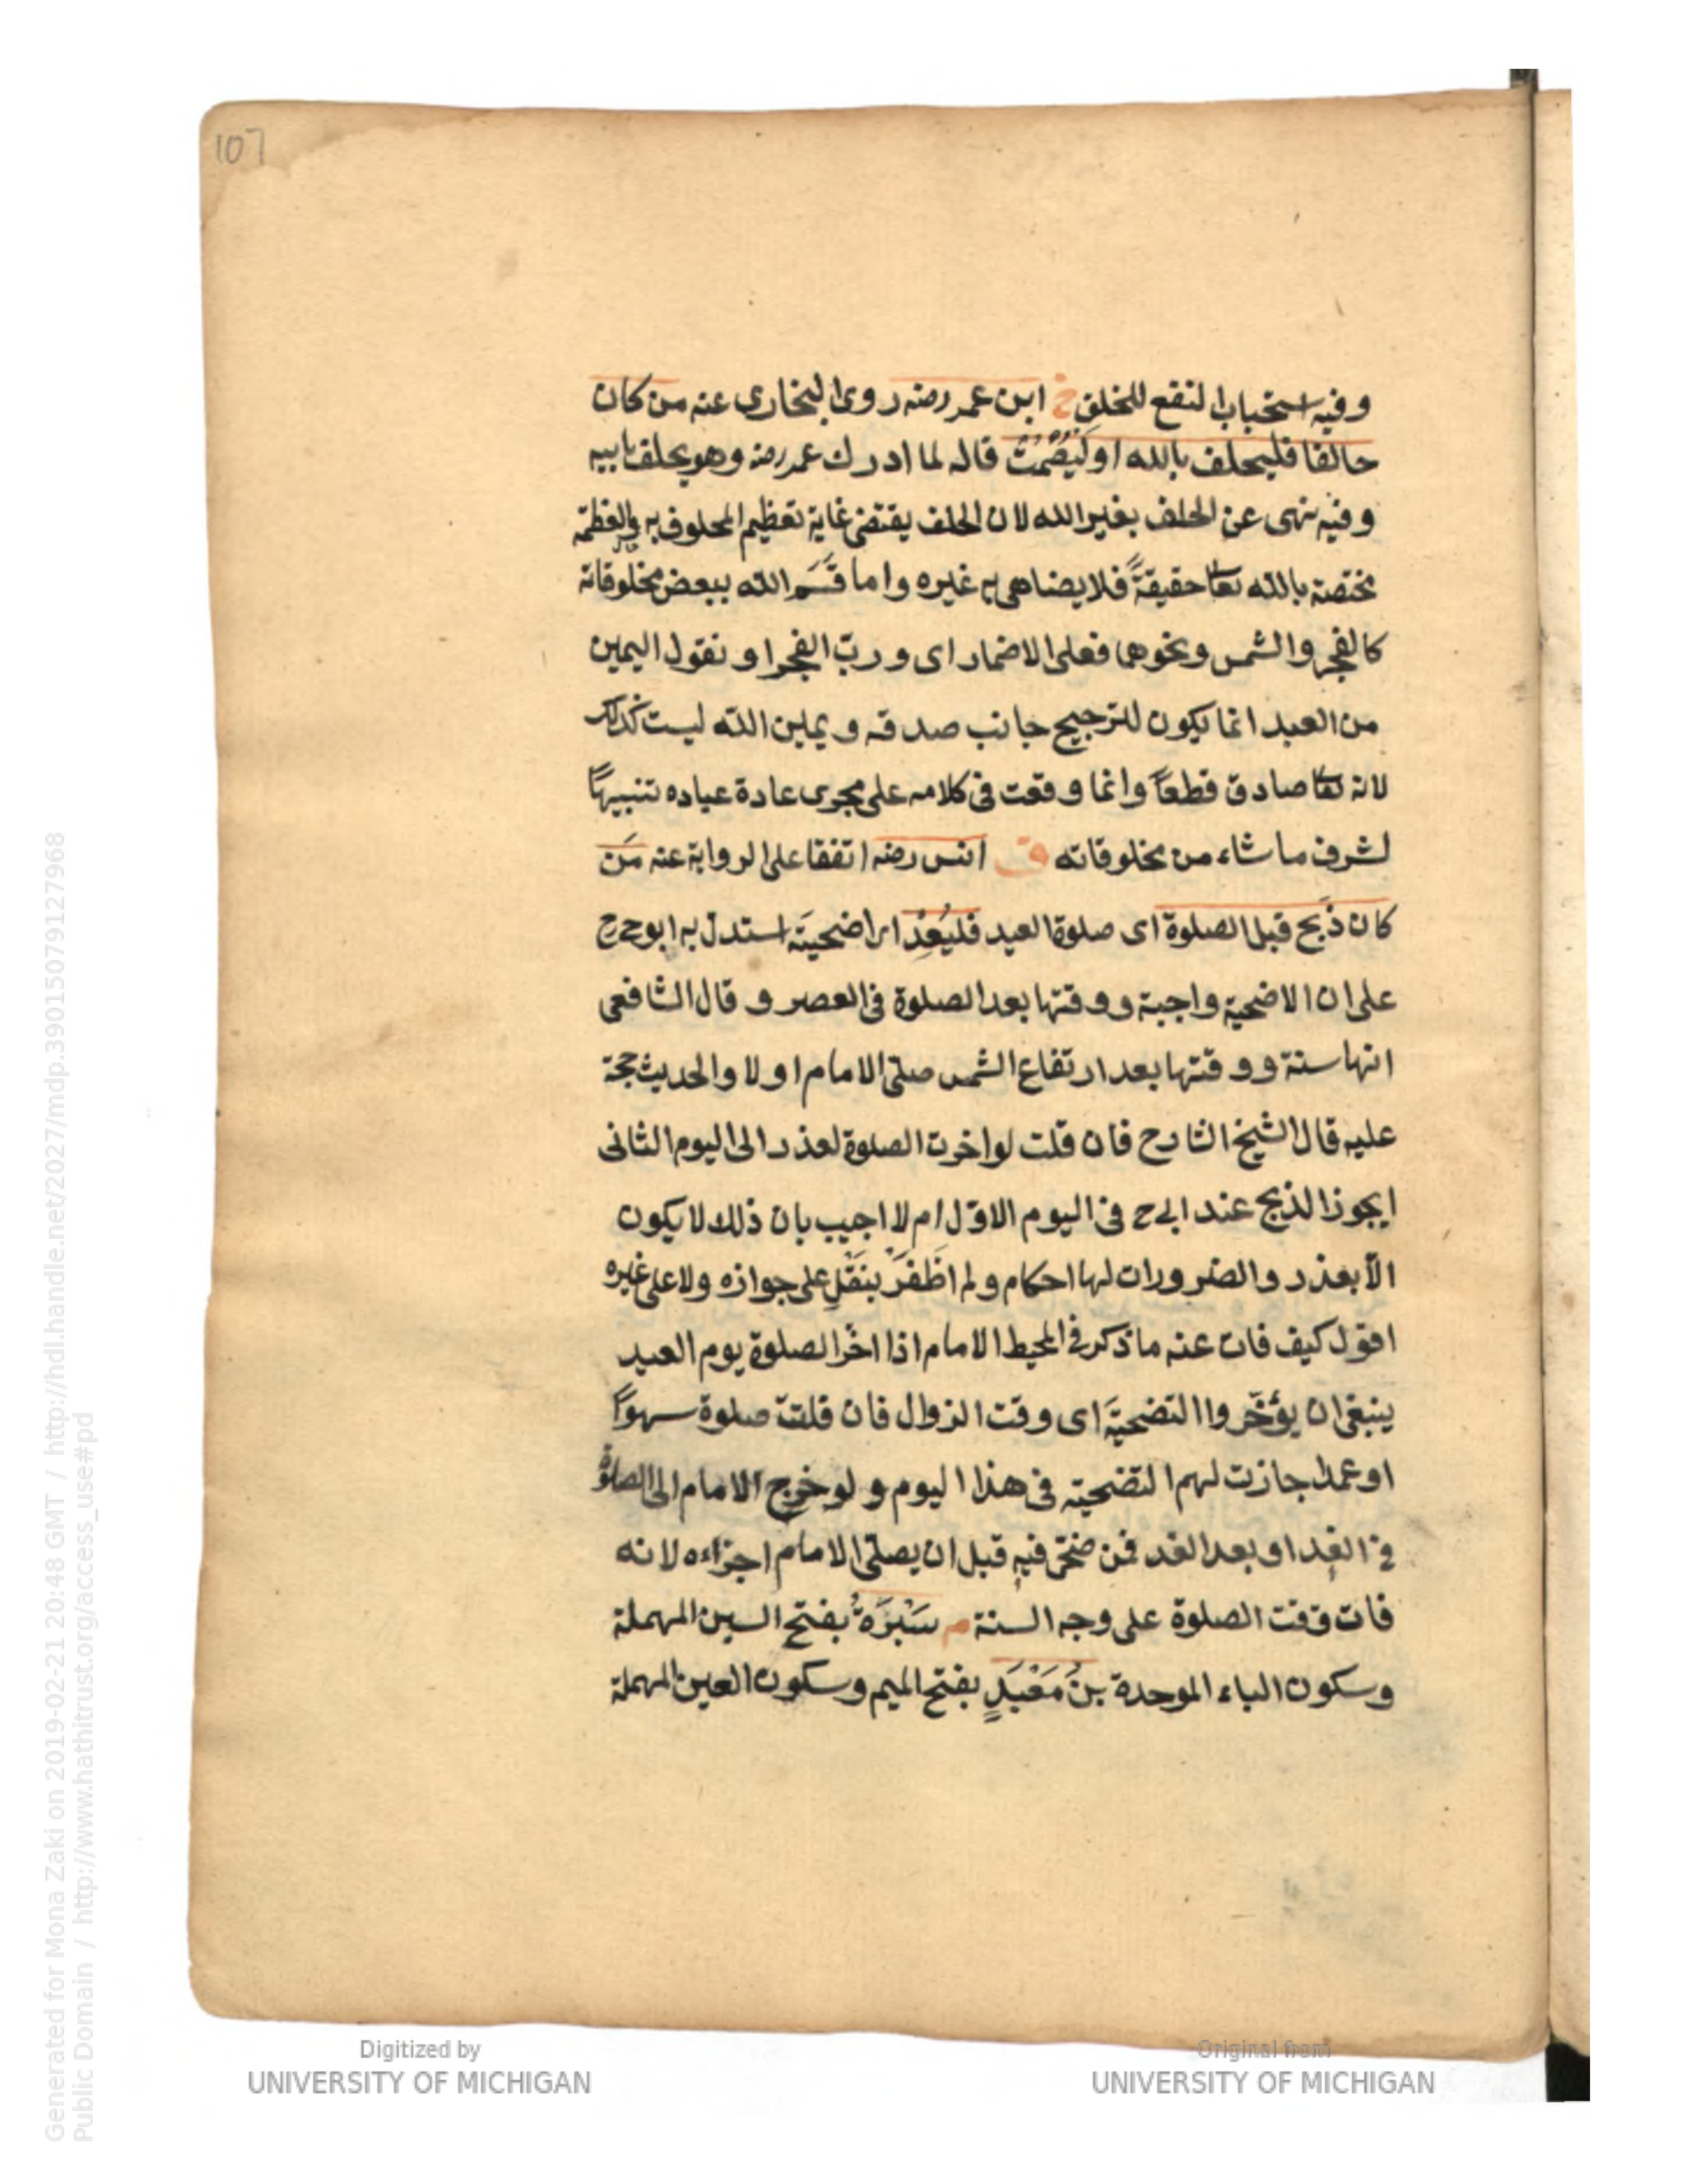 107
وفيه استحباب النفع للخلق خ ابن عمر رضه روى البخارى عنه من كان
حالفا فليحلف بالله او ليَصْمُتْ قاله لما ادرك عمر رضه وهو يحلف بابيه
وفيه نهى عن الحلف بغير الله لان الحلف يقتضى غاية تعظيم المحلوف به والعظمة
مختصة بالله تعا حقيقةً فلا يضاهى به غيره واما قَسَم الله ببعض مخلوقاته
كالفجر والشمس ونحوهما فعلى الاضمار اى ورب الفجر او نقول اليمين
من العبد انما يكون للترجيح جانب صدقه ويمين الله ليست كذلك
لانه تعا صادق قطعاً وانما وقعت فى كلامه على مجرى عادة عباده تنبيهًا
لشرف ما شاء من مخلوقاته ق انس رضه اتفقا على الرواية عنه مَن
كان ذَبح قبل الصلوة اى صلوة العيد فليُعِدْ اى اضحيته استدل به ابو ح رح
على ان الاضحية واجبة ووقتها بعد الصلوة فى العصر وقال الشافعى
انها سنة ووقتها بعد ارتفاع الشمس صلى الامام او لا والحديث حجة
عليه قال الشيخ الشارح فان قلت لو اخرت الصلوة لعذر الى اليوم الثانى
ايجوز الذبح عند ابى ح فى اليوم الاوّل ام لا اجيب بان ذلك لا يكون
الاّ بعذر والضرورات لها احكام ولم اظفَرْ بنَقْلٍ على جوازه ولا على غيره
اقول كيف فات عنه ما ذكر فى المحيط الامام اذا اخّر الصلوة يوم العيد
ينبغى ان يؤخّروا التضحيَة اى وقت الزوال فان قلت صلوة سهواً
او عمدا جازت لهم التضحية فى هذا اليوم ولو خرج الامام الى الصلوة
فى الغد او بعد الغد فمن ضحّى فيه قبل ان يصلّى الامام اجزاءه لانه
فات وقت الصلوة على وجه السنة م سَبْرَةُ بفتح السين المهملة
وسكون الباء الموحدة بنُ مَعْبَدٍ بفتح الميم وسكون العين المهملة
Digitized by
UNIVERSITY OF MICHIGAN
Original from
UNIVERSITY OF MICHIGAN
Generated for Mona Zaki on 2019-02-21 20:48 GMT / http://hdl.handle.net/2027/mdp.39015079127968
Public Domain / http://www.hathitrust.org/access_use#pd